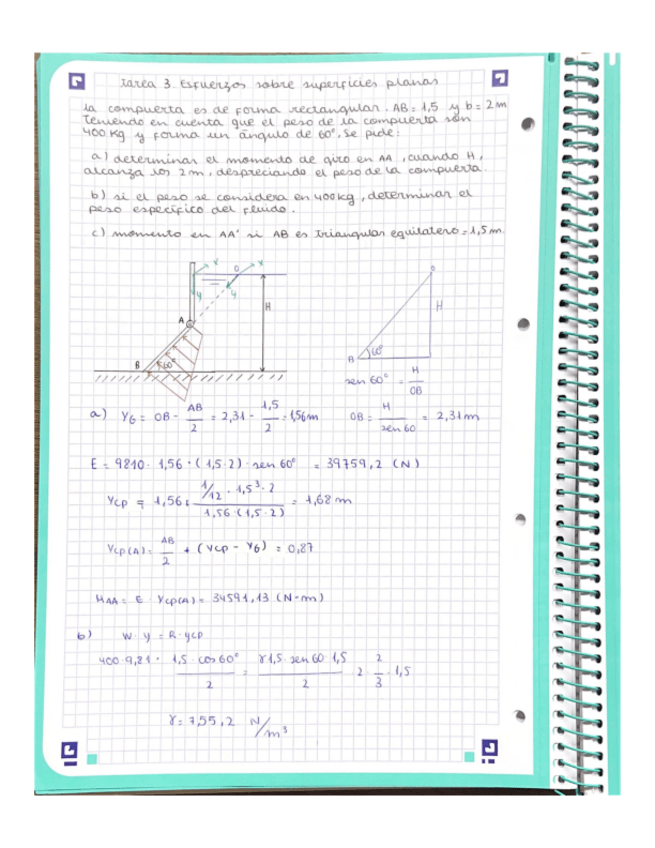 Tarea 3. Esfuerzos sobre superficies planas
La compuerta es de forma rectangular. AB = 1,5 y b = 2 m
Teniendo en cuenta que el peso de la compuerta son
400 kg y forma un ángulo de 60°, se pide:
a) determinar el momento de giro en AA, cuando H,
alcanza los 2 m, despreciando el peso de la compuerta.
b) si el peso se considera en 400 kg, determinar el
peso específico del fluido.
c) momento en AA' si AB es triangular equilatero = 1,5 m.
x
O
x
y
y
H
A
B
60°
O
H
B
60°
sen 60° = H / OB
a) YG = OB - AB/2 = 2,31 - 1,5/2 = 1,56 m
OB = H / sen 60 = 2,31 m
E = 9810 · 1,56 · (1,5 · 2) · sen 60° = 39759,2 (N)
Ycp = 1,56 + 1/12 · 1,5³ · 2 / 1,56 · (1,5 · 2) = 1,68 m
Ycp(A) = AB/2 + (Ycp - YG) = 0,87
MAA = E · Ycp(A) = 34591,13 (N-m)
b) W · y = R · ycp
400 · 9,81 · 1,5 · cos 60° / 2 = γ 1,5 · sen 60 · 1,5 / 2 · 2 · 2/3 · 1,5
γ = 755,2 N/m³